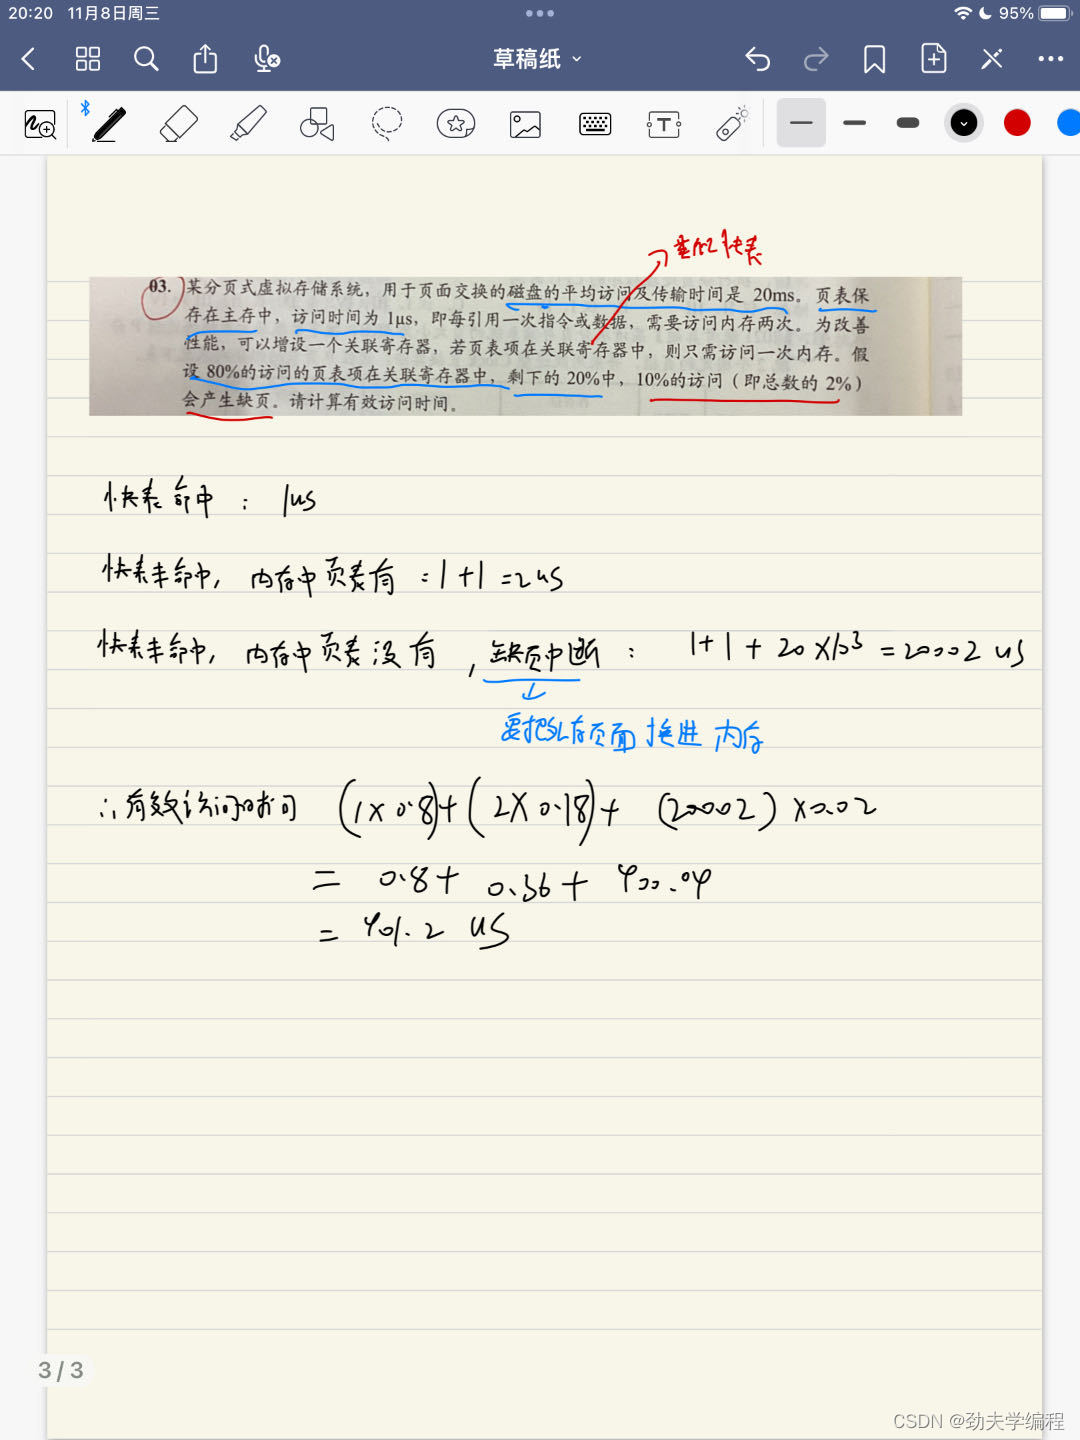 20:20 11月8日周三
95%
草稿纸
T
季的快表
03. 某分页式虚拟存储系统，用于页面交换的磁盘的平均访问及传输时间是 20ms。页表保
存在主存中，访问时间为 1μs，即每引用一次指令或数据，需要访问内存两次。为改善
性能，可以增设一个关联寄存器，若页表项在关联寄存器中，则只需访问一次内存。假
设 80%的访问的页表项在关联寄存器中，剩下的 20%中，10%的访问（即总数的 2%）
会产生缺页。请计算有效访问时间。
快表命中：1us
快表未命中，内存中页表有：1+1=2us
快表未命中，内存中页表没有，缺页中断：1+1+20×10³=20002us
要把外存页面换进内存
∴有效访问时间 (1×0.8)+(2×0.18)+(20002)×0.02
= 0.8+0.36+400.04
= 401.2 us
3/3
CSDN @劲夫学编程